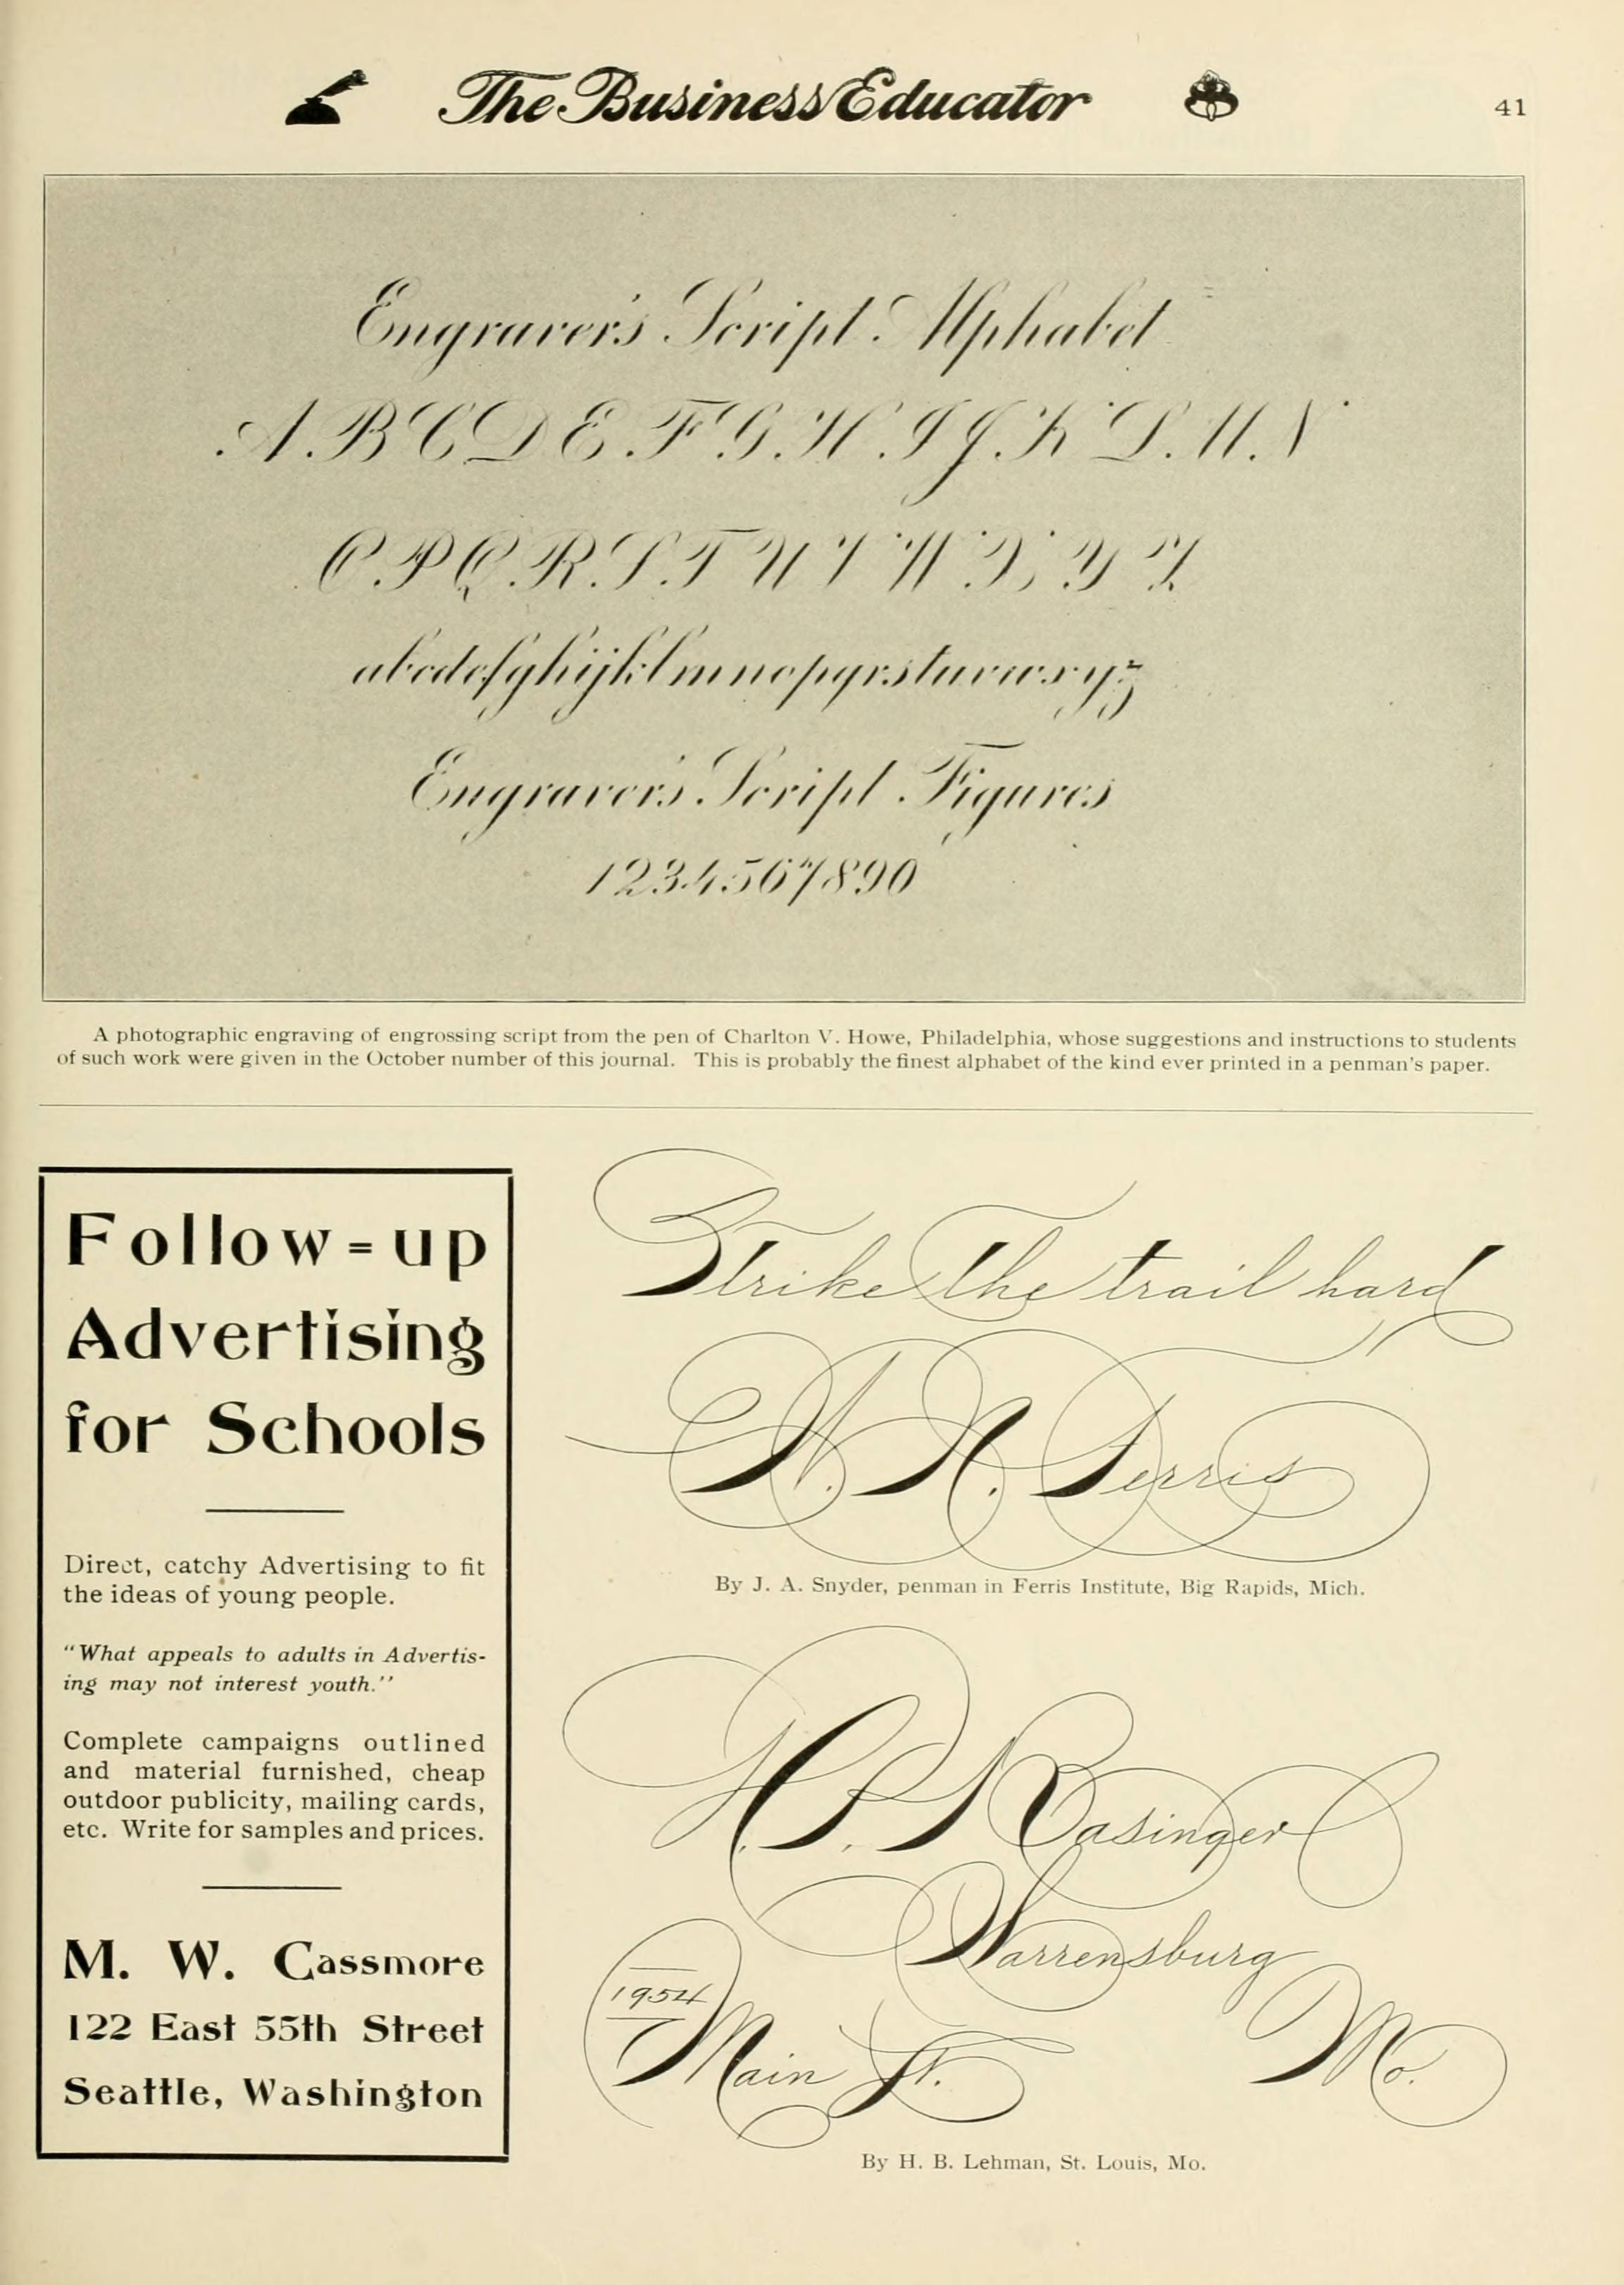 The Business Educator
41
Engraver's Script Alphabet
A B C D E F G H I J K L M N
O P Q R S T U V W X Y Z
abcdefghijklmnopqrstuvwxyz
Engraver's Script Figures
1234567890
A photographic engraving of engrossing script from the pen of Charlton V. Howe, Philadelphia, whose suggestions and instructions to students
of such work were given in the October number of this journal. This is probably the finest alphabet of the kind ever printed in a penman's paper.
Follow=up
Advertising
for Schools
Direct, catchy Advertising to fit
the ideas of young people.
"What appeals to adults in Advertis-
ing may not interest youth."
Complete campaigns outlined
and material furnished, cheap
outdoor publicity, mailing cards,
etc. Write for samples and prices.
M. W. Cassmore
122 East 55th Street
Seattle, Washington
Strike The trail hard
W. N. Ferris
By J. A. Snyder, penman in Ferris Institute, Big Rapids, Mich.
Basinger
Warrensburg
1954
Main St.
Mo.
By H. B. Lehman, St. Louis, Mo.